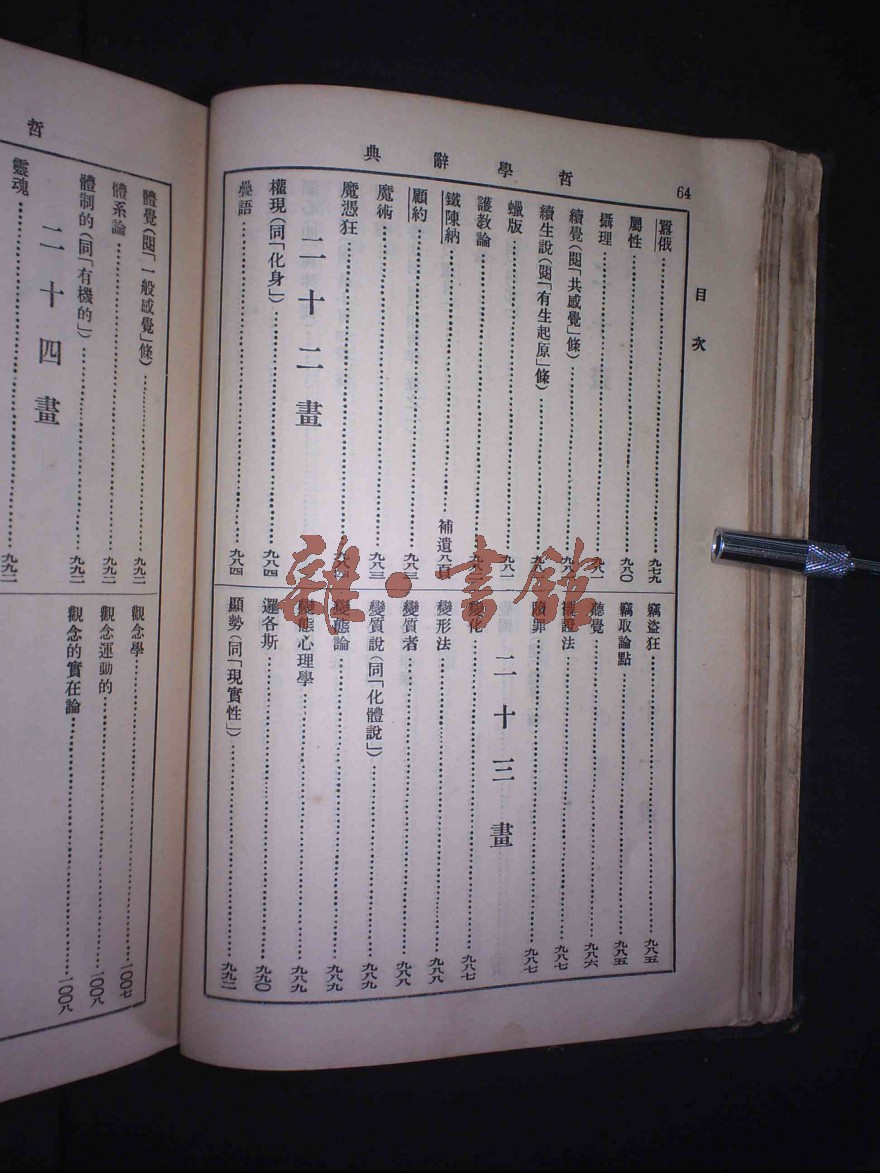 64
哲學辭典
目次
囂俄……九七九
屬性……九八〇
攝理……
續覺(閱「共感覺」條)……
續生說(閱「有生起原」條)……
蠟版……九八一
護教論……
鐵陳納……補遺八頁
顧約……九八三
魔術……九八三
魔憑狂……九八四
二十二畫
權現(同「化身」)……九八四
疊語……九八四
竊盜狂……九八五
竊取論點……九八五
聽覺……九八六
證法……九八七
贖罪……九八七
二十三畫
變化……九八七
變形法……九八八
變質者……九八八
變質說(同「化體說」)……九八九
變態論……九八九
變態心理學……九八九
邏各斯……九九〇
顯勢(同「現實性」)……九九二
哲
體覺(閱「一般感覺」條)……九九二
體系論……九九二
體制的(同「有機的」)……九九二
二十四畫
靈魂……九九二
觀念學……一〇〇七
觀念運動的……一〇〇八
觀念的實在論……一〇〇八
雜·書館